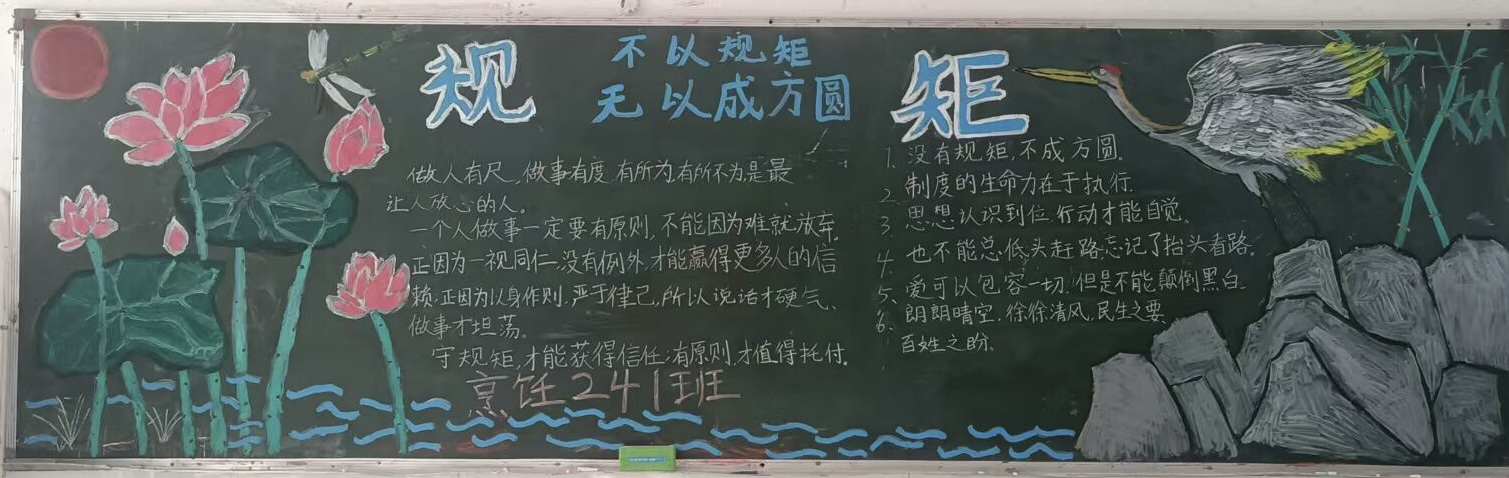 规
不以规矩
无以成方圆
矩
做人有尺,做事有度,有所为,有所不为是最
让人放心的人。
一个人做事一定要有原则,不能因为难就放弃。
正因为一视同仁,没有例外,才能赢得更多人的信
赖;正因为以身作则,严于律己,所以说话才硬气、
做事才坦荡。
守规矩,才能获得信任;有原则,才值得托付。
烹饪241班
1. 没有规矩,不成方圆。
2. 制度的生命力在于执行.
3. 思想认识到位,行动才能自觉、
4. 也不能总低头赶路,忘记了抬头看路。
5、爱可以包容一切,但是不能颠倒黑白
6. 朗朗晴空、徐徐清风,民生之要、
百姓之盼.